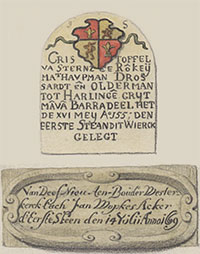 CRIS TOFFEL
VA STERNZEE RŌKEY
MAT HAUPMAN DROS
SARDT EN OLDERMAN
TOT HARLINGĒ GRYT
MĀVĀ BARRADEEL HET
DE XVI MEY Aº.55: DEN
EERSTE STEAN DIT WIERCK
GELEGT
Van Deese Nieu-Aen-Bouder Wester
kerck Lach Jan Wopkes Acker
d'Erste Steen den 14 Iulii Anno